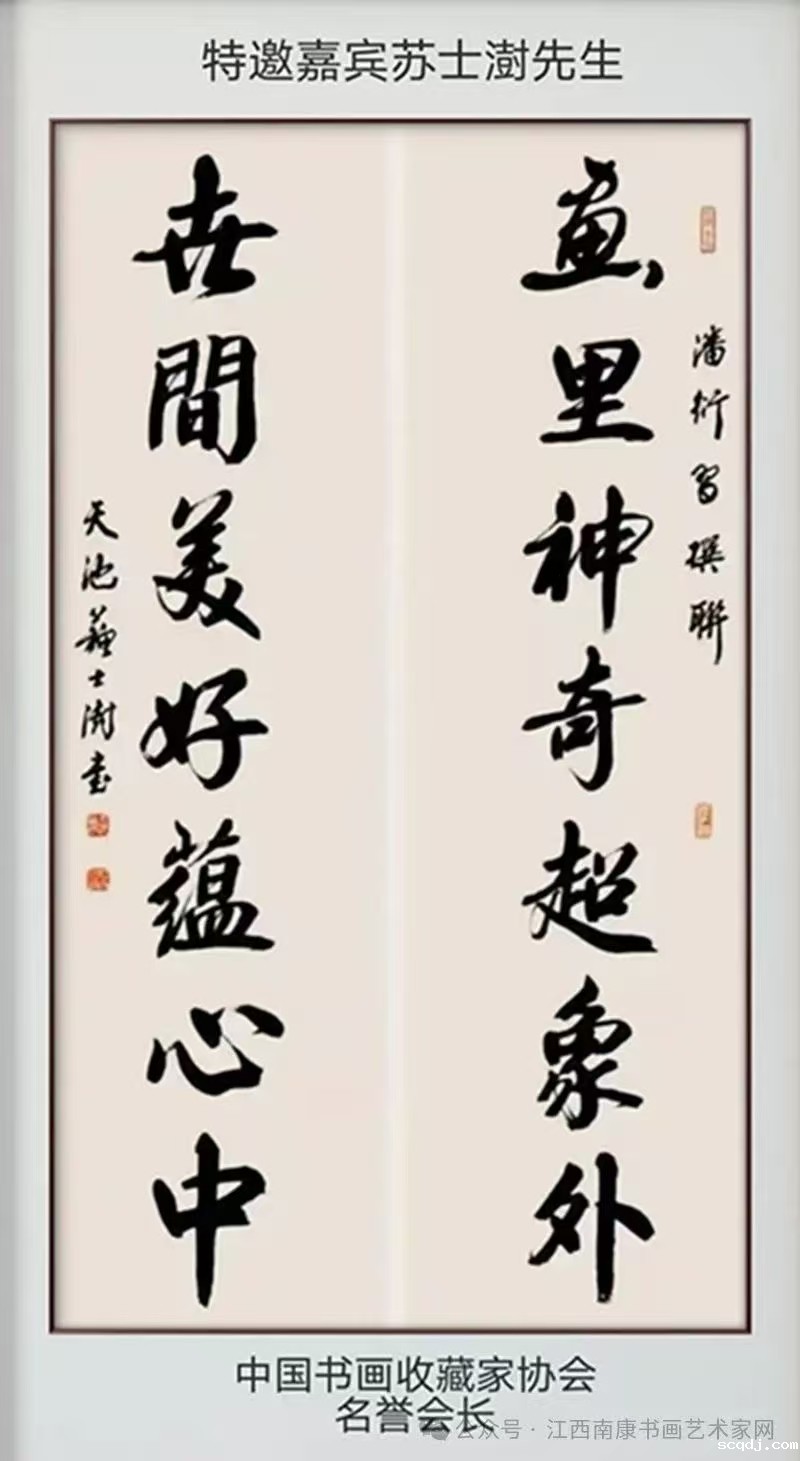 特邀嘉宾苏士澍先生
潘衍習撰聯
畫里神奇超象外
世間美好蕴心中
天池蘇士澍书
中国书画收藏家协会
名誉会长
公众号·江西南康书画艺术家网
scqdj.com